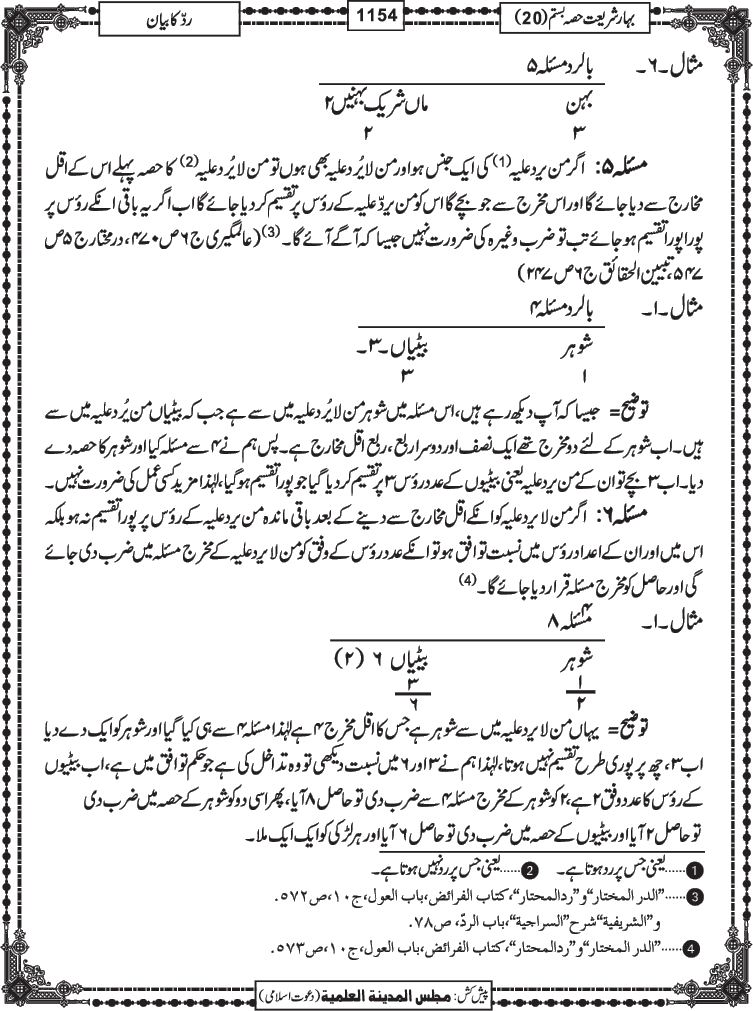 بہارِ شریعت حصہ بستم (20)
1154
ردّ کا بیان
مثال ۔۶۔ بالرد مسئلہ ۵
بہن ماں شریک بہنیں ۲
۳ ۲
مسئلہ ۵: اگر من یرد علیہ (1) کی ایک جنس ہو اور من لا یُرد علیہ بھی ہوں تو من لا یُرد علیہ (2) کا حصہ پہلے اس کے اقل
مخارج سے دیا جائے گا اور اس مخرج سے جو بچے گا اس کو من یردّ علیہ کے رؤس پر تقسیم کر دیا جائے گا اب اگر یہ باقی انکے رؤس پر
پورا پورا تقسیم ہو جائے تب تو ضرب وغیرہ کی ضرورت نہیں جیسا کہ آگے آئے گا۔ (3) (عالمگیری ج ۶ ص ۴۷۰، درمختار ج ۵ ص
۵۴۷، تبیین الحقائق ج ۶ ص ۲۴۷)
مثال ۔۱۔ بالرد مسئلہ ۴
شوہر بیٹیاں ۔۳۔
۱ ۳
توضیح= جیسا کہ آپ دیکھ رہے ہیں، اس مسئلہ میں شوہر من لا یُرد علیہ میں سے ہے جب کہ بیٹیاں من یُرد علیہ میں سے
ہیں۔ اب شوہر کے لئے دو مخرج تھے ایک نصف اور دوسرا ربع، ربع اقل مخارج ہے۔ پس ہم نے ۴ سے مسئلہ کیا اور شوہر کا حصہ دے
دیا۔ اب ۳ بچے تو ان کے من یرد علیہ یعنی بیٹیوں کے عدد رؤس ۳ پر تقسیم کر دیا گیا جو پورا تقسیم ہو گیا، لہٰذا مزید کسی عمل کی ضرورت نہیں۔
مسئلہ ۶: اگر من لا یرد علیہ کو انکے اقل مخارج سے دینے کے بعد باقی ماندہ من یرد علیہ کے رؤس پر پورا تقسیم نہ ہو بلکہ
اس میں اور ان کے اعداد رؤس میں نسبت توافق ہو تو انکے عدد رؤس کے وفق کو من لا یرد علیہ کے مخرج مسئلہ میں ضرب دی جائے
گی اور حاصل کو مخرج مسئلہ قرار دیا جائے گا۔ (4)
مثال ۔۱۔ مسئلہ ۴ ۸
شوہر بیٹیاں ۶ (۲)
۱ ۳
۲ ۶
توضیح= یہاں من لا یرد علیہ میں سے شوہر ہے جس کا اقل مخرج ۴ ہے لہٰذا مسئلہ ۴ سے ہی کیا گیا اور شوہر کو ایک دے دیا
اب ۳، چھ پر پوری طرح تقسیم نہیں ہوتا، لہٰذا ہم نے ۳ اور ۶ میں نسبت دیکھی تو وہ تداخل کی ہے جو حکم توافق میں ہے، اب بیٹیوں
کے رؤس کا عدد وفق ۲ ہے، ۲ کو شوہر کے مخرج مسئلہ ۴ سے ضرب دی تو حاصل ۸ آیا، پھر اسی دو کو شوہر کے حصہ میں ضرب دی
تو حاصل ۲ آیا اور بیٹیوں کے حصہ میں ضرب دی تو حاصل ۶ آیا اور ہر لڑکی کو ایک ایک ملا۔
1 ......یعنی جس پر رد ہوتا ہے۔ 2 ......یعنی جس پر رد نہیں ہوتا ہے۔
3 ......"الدر المختار" و "ردالمحتار"، کتاب الفرائض، باب العول، ج۱۰، ص۵۷۲.
و "الشریفیة" شرح "السراجیة"، باب الردّ، ص۷۸.
4 ......"الدر المختار" و "ردالمحتار"، کتاب الفرائض، باب العول، ج۱۰، ص۵۷۳.
پیش کش: مجلس المدینة العلمیة (دعوت اسلامی)